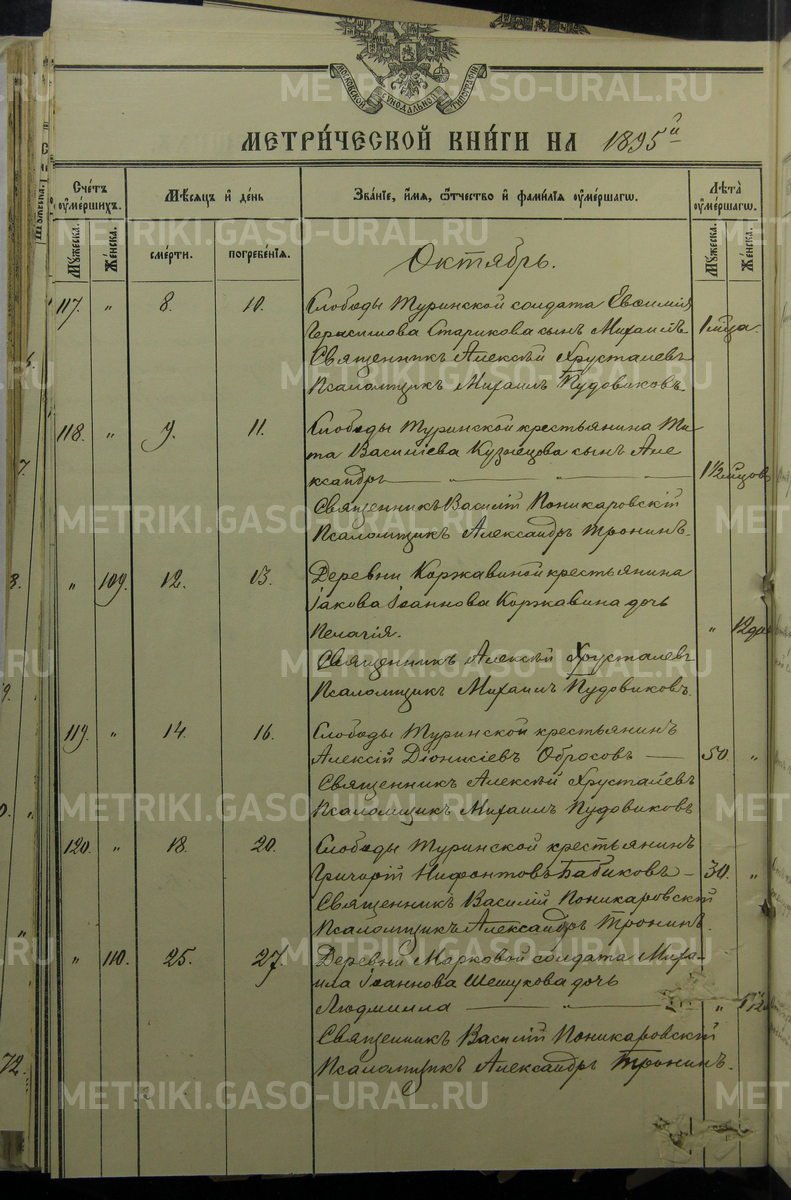 МОСКОВСКОЙ СѴНОДАЛЬНОЙ ТИПОГРАФІИ
МЕТРИ́ЧЕСКОЙ КНИ́ГИ НА 1895й
Сче́тъ ᲂу҆ме́ршихъ.
Мѣ́сяцъ и҆ де́нь
Зва́нїе, и҆́мя, ѻ҆́тчество и҆ фами́лїя ᲂу҆ме́ршагѡ.
Лѣ́та ᲂу҆ме́ршагѡ.
Мꙋ́жеска.
Же́нска.
сме́рти.
погребе́нїя.
Мꙋ́жеска.
Же́нска.
Октябрь.
117. " 8. 10. Слободы Туринской солдата Евѳимія
Герасимова Старикова сынъ Михаилъ 1 мца.
Священникъ Алексѣй Хрусталевъ
Псаломщикъ Михаилъ Пудовиковъ.
118. " 9. 11. Слободы Туринской крестьянина Ти-
та Василіева Кузнецова сынъ Але
ксандръ — " — " — " — 1½ мцовъ
Священникъ Василій Поникаровскій
Псаломщикъ Александръ Тронинъ.
" 109. 12. 13. Деревни Коржавиной крестьянина
Іакова Іоаннова Коржавина дочь
Пелагія. " 12 дне
Священникъ Алексѣй Хрусталевъ
Псаломщикъ Михаилъ Пудовиковъ
119. " 14. 16. Слободы Туринской крестьянинъ
Алексій Діонисіевъ Обросовъ — 50. "
Священникъ Алексѣй Хрусталевъ
Псаломщикъ Михаилъ Пудовиковъ
120. " 18. 20. Слободы Туринской крестьянинъ
Григорій Нифонтовъ Бабиковъ — 30. "
Священникъ Василій Поникаровскій
Псаломщикъ Александръ Тронинъ.
" 110. 25. 27. Деревни Марковой солдата Миха-
ила Іоаннова Шешукова дочь
Людмилла — " — "
Священникъ Василій Поникаровскій
Псаломщикъ Александръ Тронинъ.
METRIKI.GASO-URAL.RU